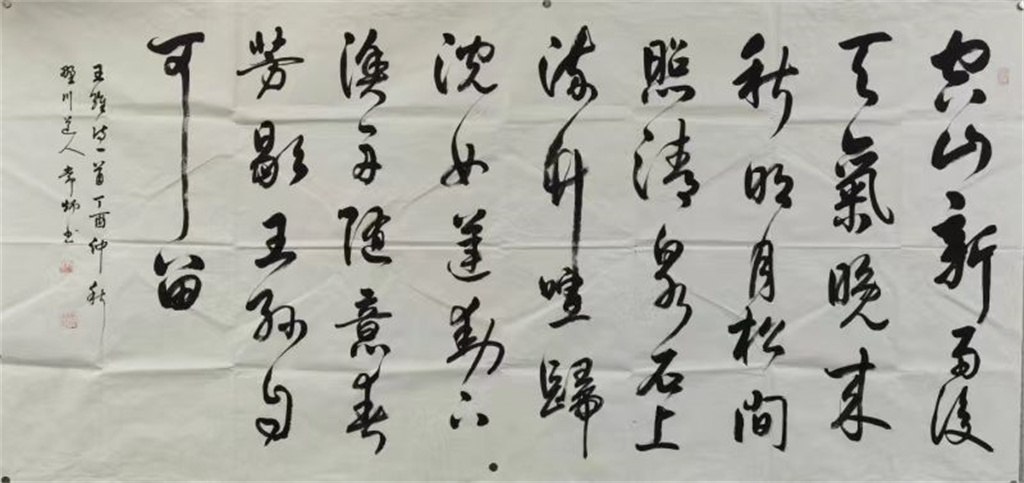 空山新雨後
天氣晚来
秋明月松間
照清泉石上
流竹喧歸
浣女蓮動下
漁舟随意春
芳歇王孫自
可留
王維诗一首丁酉仲秋
川道人书